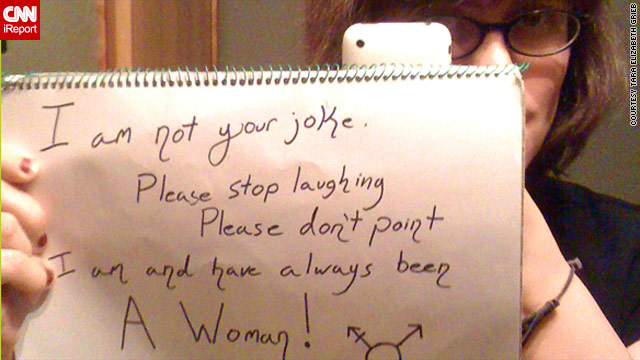 CNN
iReport
COURTESY TARA ELIZABETH GRIEB
I am not your joke.
Please stop laughing
Please don't point
I am and have always been
A Woman!